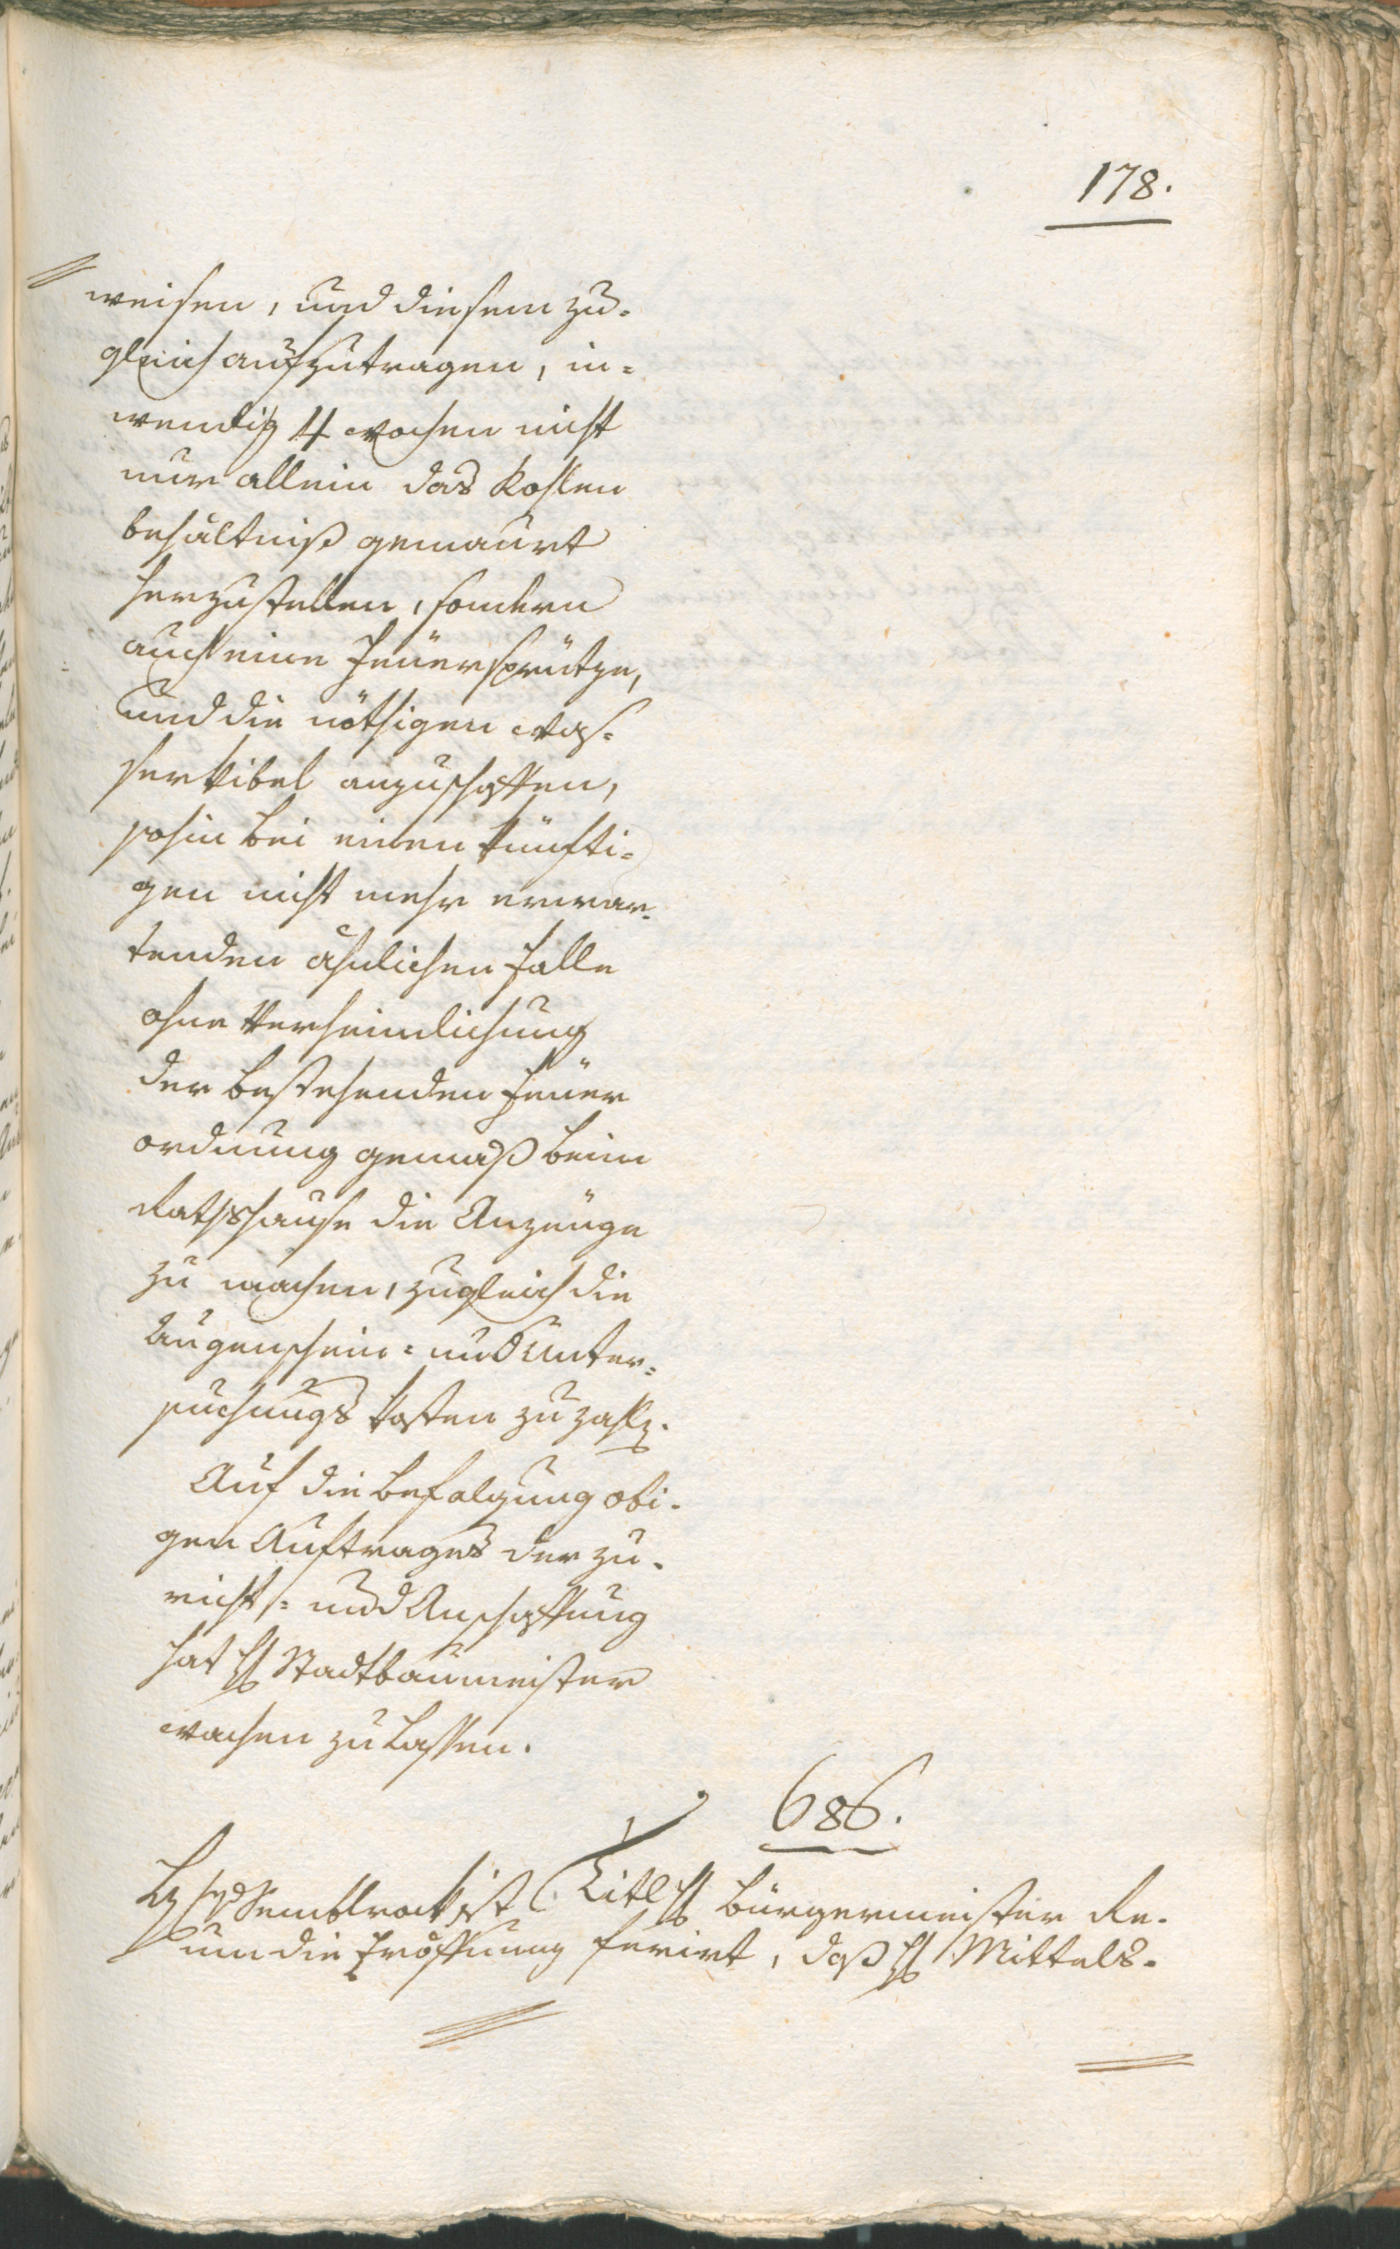 178.
weisen, und diesem zu-
gleich aufzutragen, in-
wendig 4 wochen nicht
nur allein das Kohlen
behältniß gemauert
herzustellen, sondern
auch eine Feüersprütze,
und die nöthigen was-
serkibel anzuschaffen,
sohin bei einen künfti-
gen nicht mehr erwar-
tenden ähnlichen Falle
ohne Verheimlichung
der bestehenden Feüer
ordnung gemäß beim
Rathshause die Anzeüge
zu machen, zugleich die
Augenschein- und Unter-
suchungs kosten zu zahlen.
Auf die Befolgung obi-
gen Auftrages der zu-
richt- und Anschaffung
hat H Stadtbaumeister
wachen zu lassen.
686.
ist
um die Eröffnung
Titl H Bürgermeister Re-
ferirt, daß H Mittels-